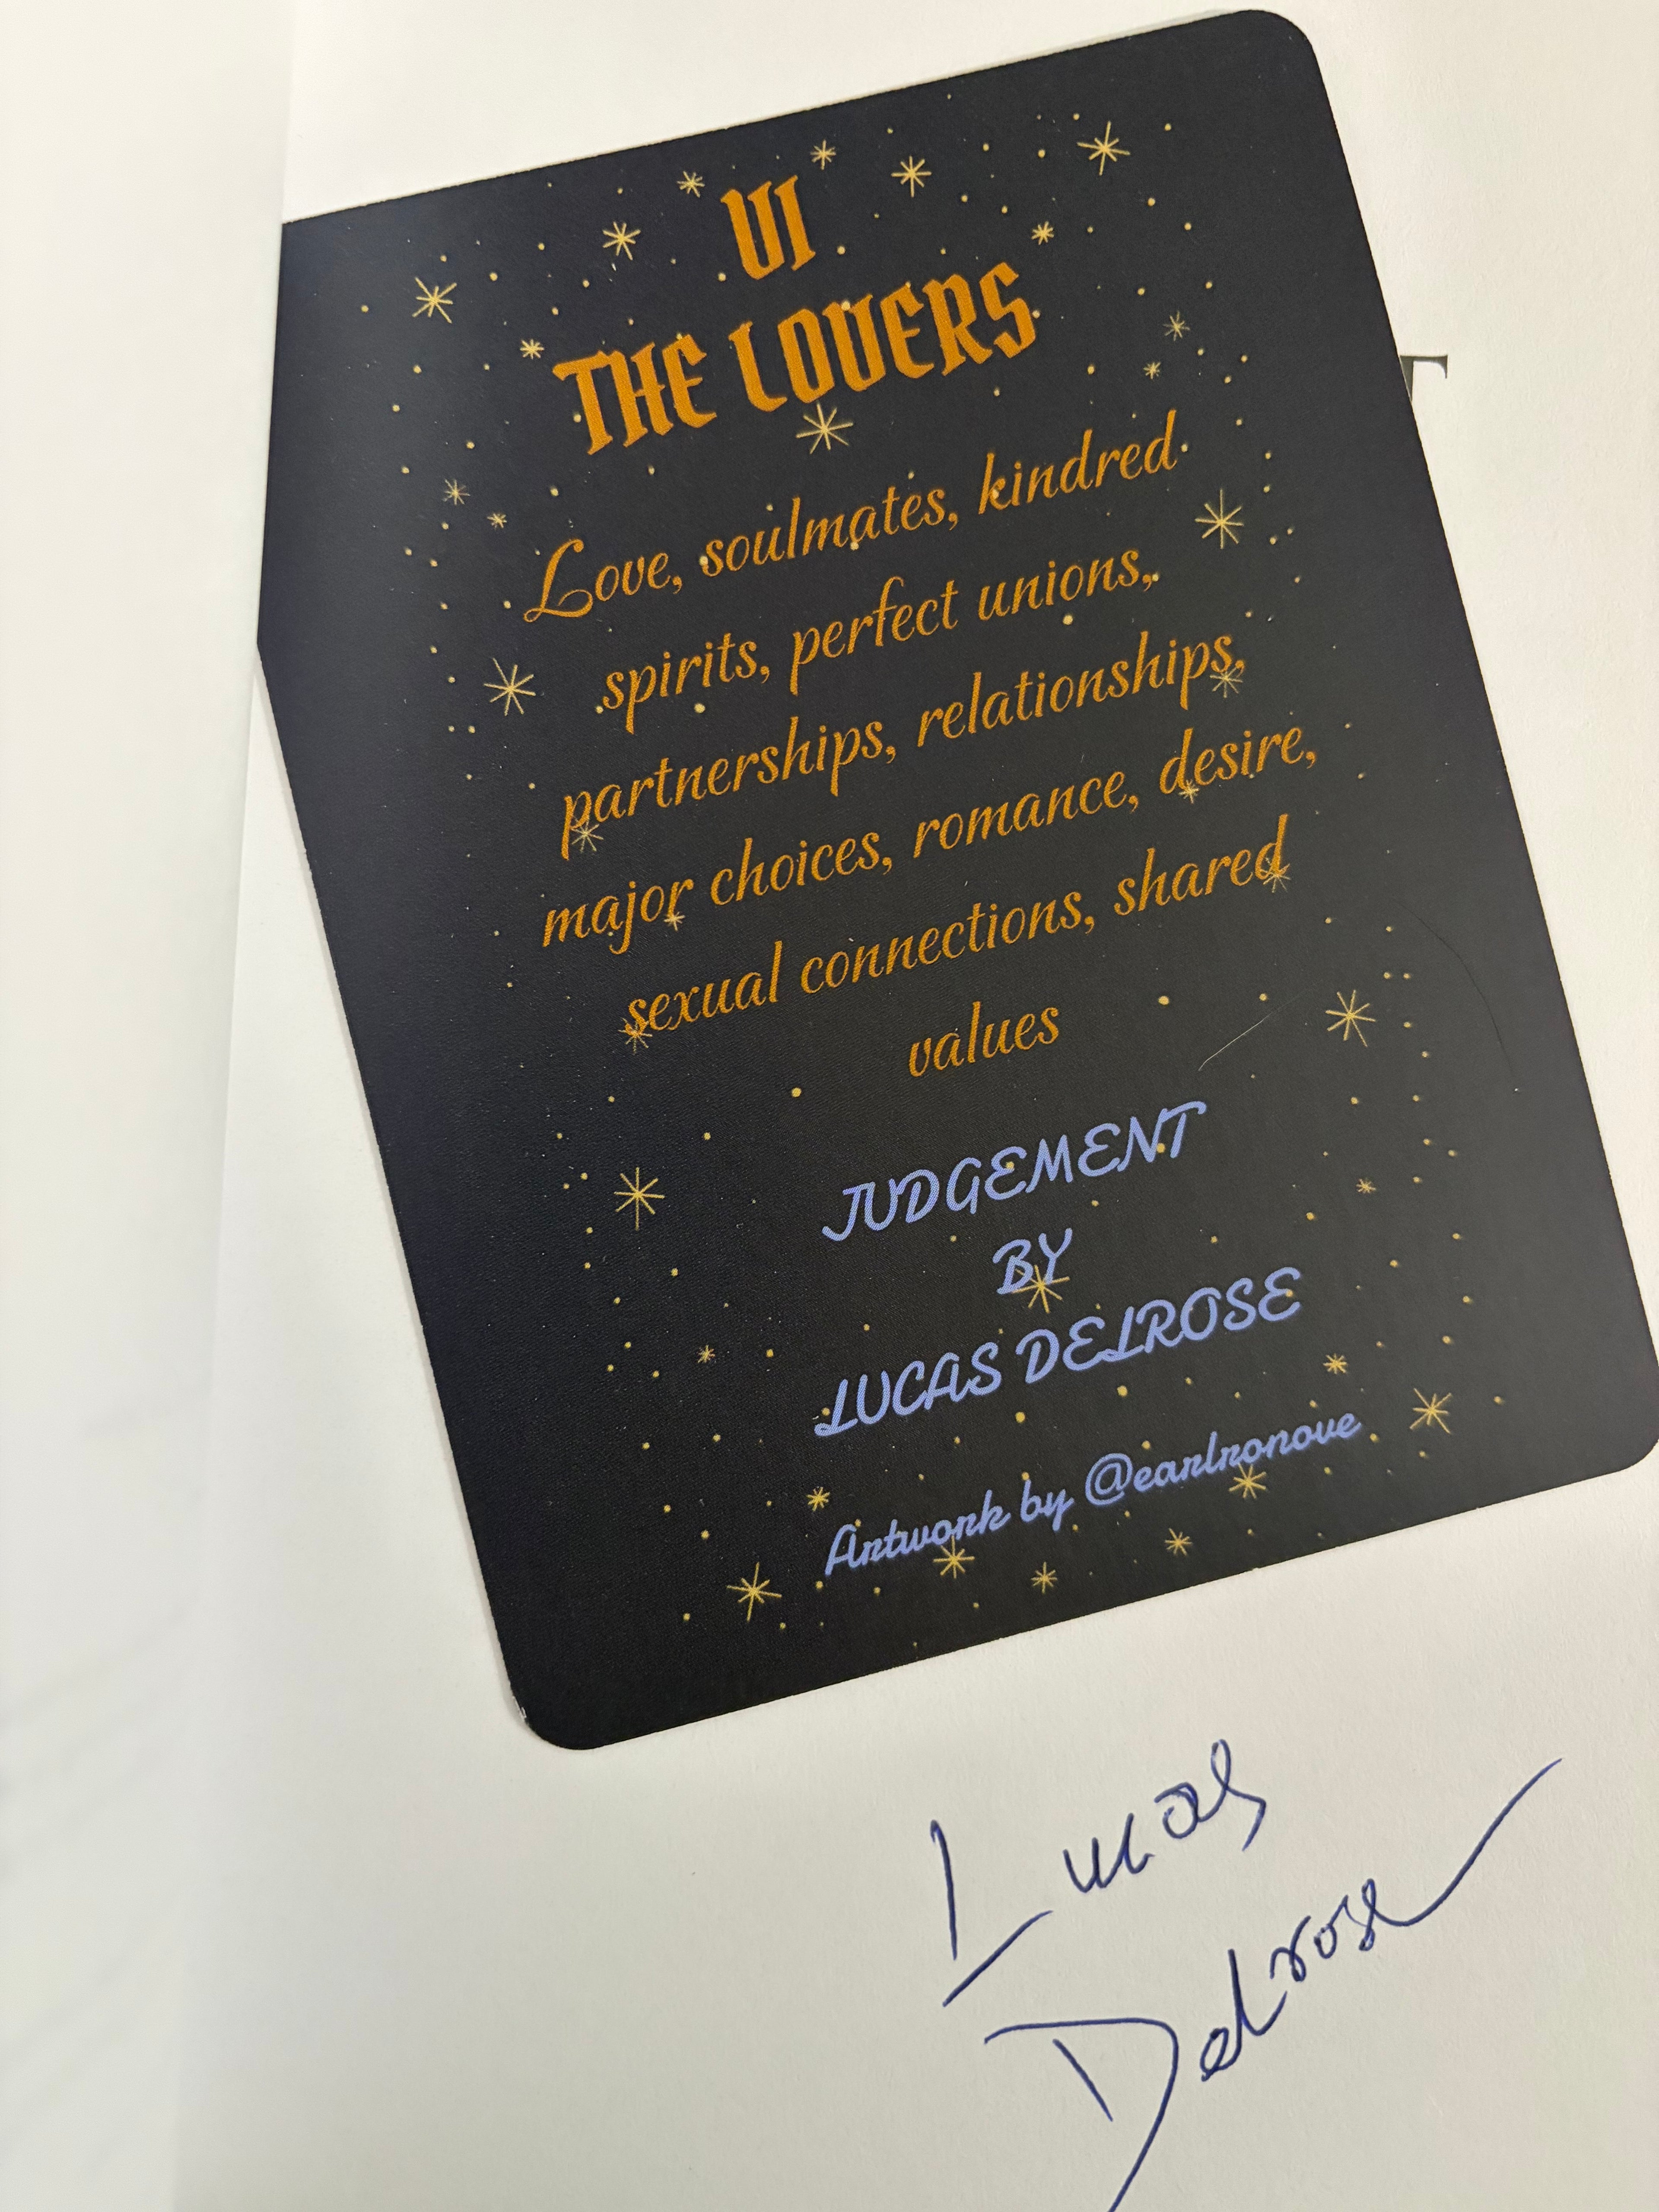 VI
THE LOVERS
Love, soulmates, kindred
spirits, perfect unions,
partnerships, relationships,
major choices, romance, desire,
sexual connections, shared
values
JUDGEMENT
BY
LUCAS DELROSE
Artwork by @earlronove
Lucas
Delrose